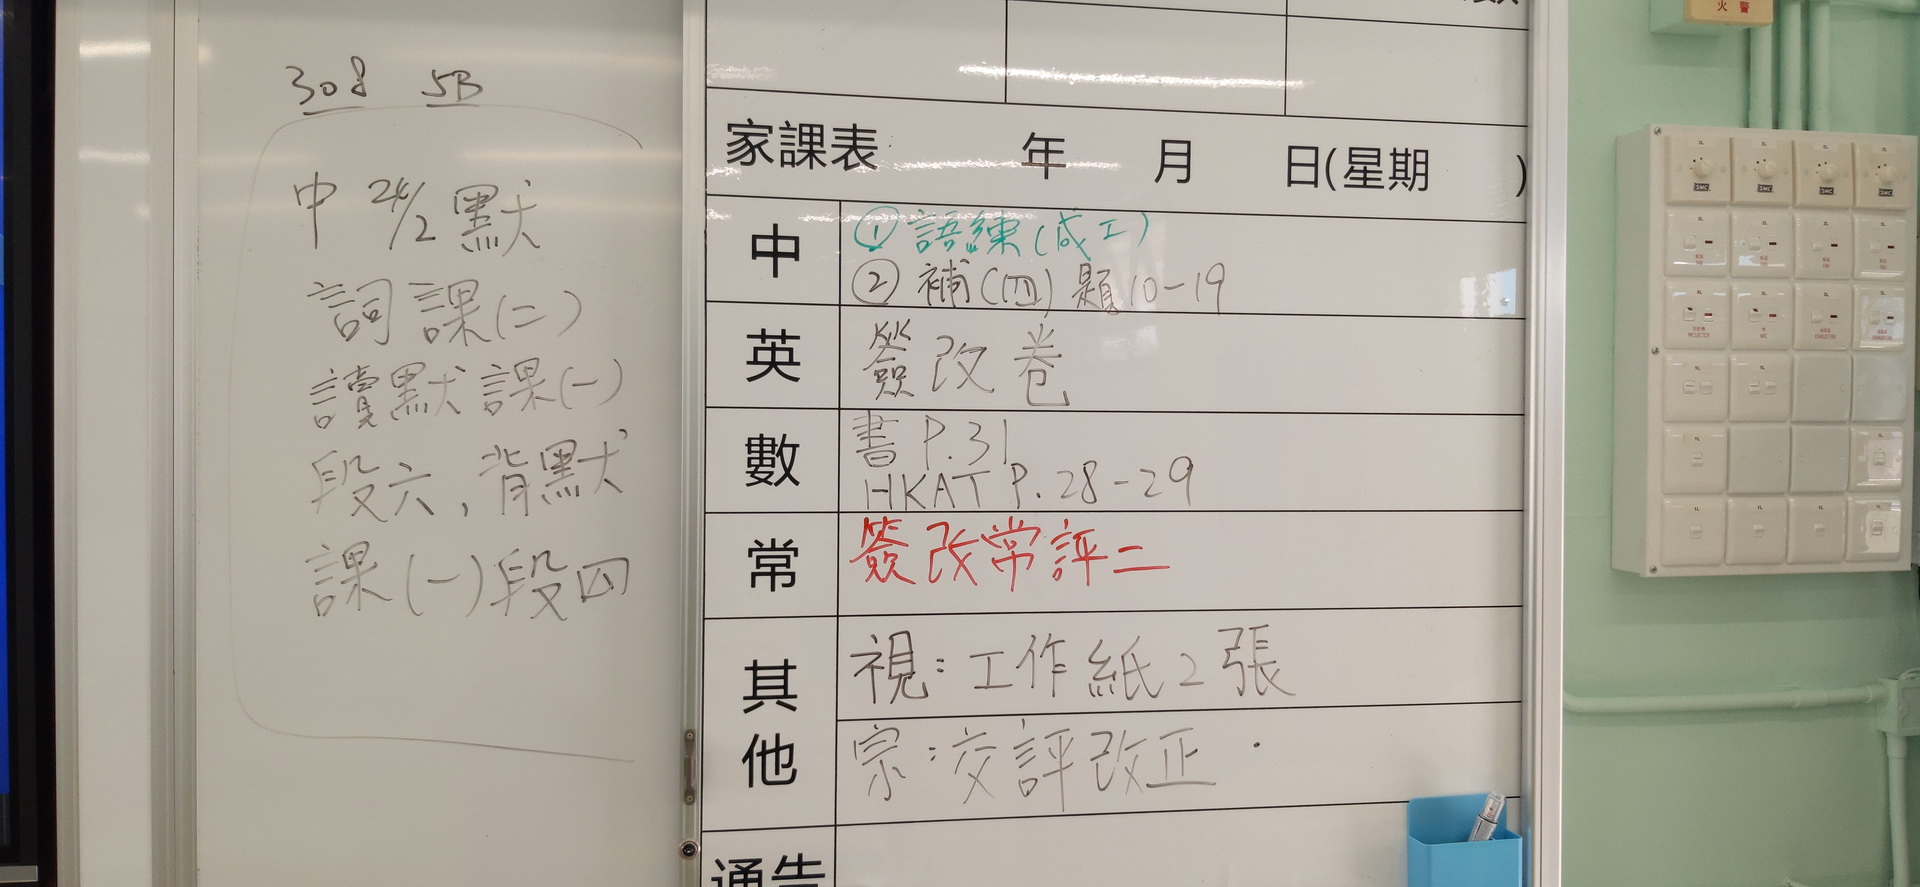 308 5B
中 24/2 默
詞 課(二)
讀默課(一)
段六，背默
課(一)段四
家課表 年 月 日(星期 )
中
① 語練(成工)
② 補(四) 題10-19
英
簽改卷
數
書 P.31
HKAT P.28-29
常
簽改常評二
其他
視：工作紙2張
宗：交評改正
通告
火警